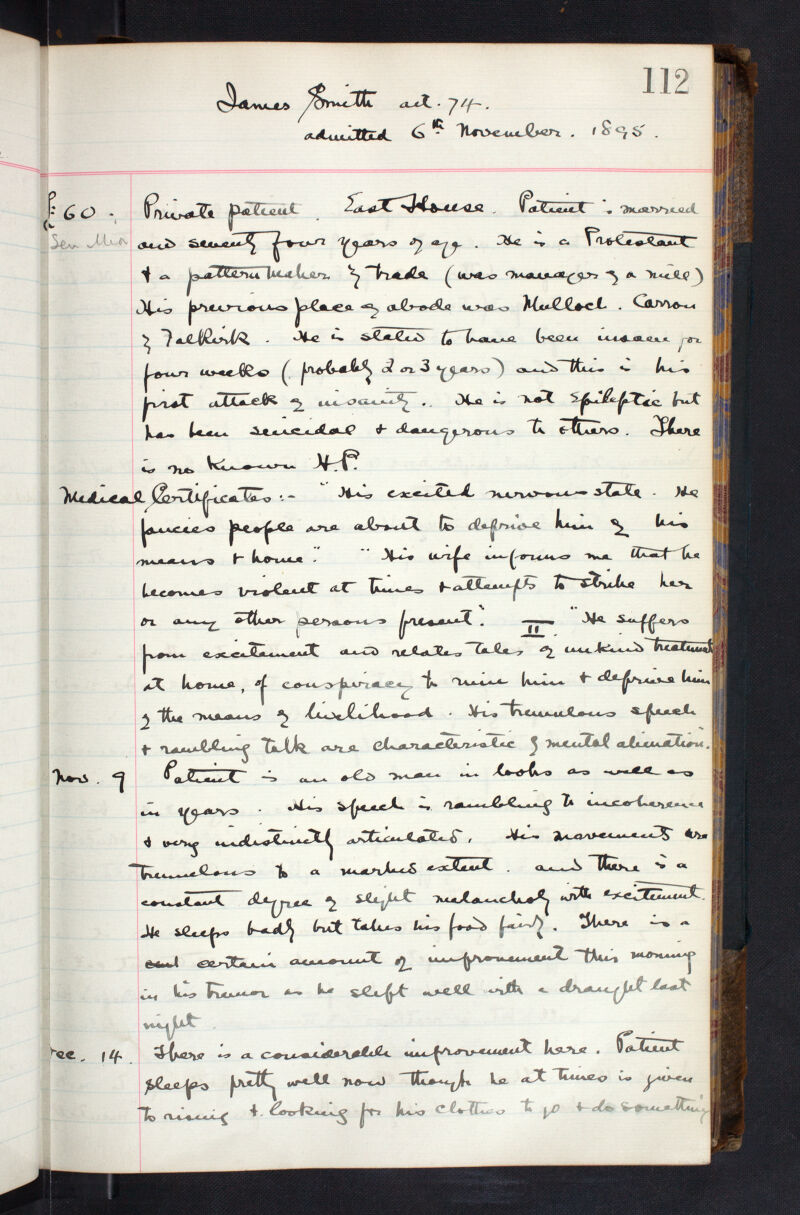 112
James Smith aet. 74.
admitted 6th November. 1895.
£60. Private patient. East House. Patient is married
and seventy four years of age. He is a Protestant
+ a pattern maker by trade (was manager of a mill)
His previous place of abode was Carron
by Falkirk. He is stated to have been insane for
four weeks (probably 2 or 3 years) and this is his
first attack of insanity. He is not Epileptic but
has been suicidal + dangerous to others. There
is no known H.P.
Medical Certificates:- "His excited nervous state. He
fancies people are about to deprive him of his
means + home". "His wife informs me that he
becomes violent at times + attempts to strike her
or any other persons present". II. "He suffers
from excitement and relates tales of unkind treatment
at home, of conspiracy to ruin him + deprive him
of the means of livelihood. His tremulous speech
+ rambling talk are characteristic of mental alienation".
Nov. 9 Patient is an old man in looks as well as
in years. His speech is rambling to incoherence
+ very indistinctly articulated. His movements are
tremulous to a marked extent. and there is a
constant degree of slight melancholy with excitement.
He sleeps badly but takes his food fairly. There is a
certain amount of improvement this morning
in his tremor as he slept well with a draught last
night.
Dec. 14. There is a considerable improvement here. Patient
sleeps pretty well now though he at times is given
to rising + looking for his clothes to go + do something